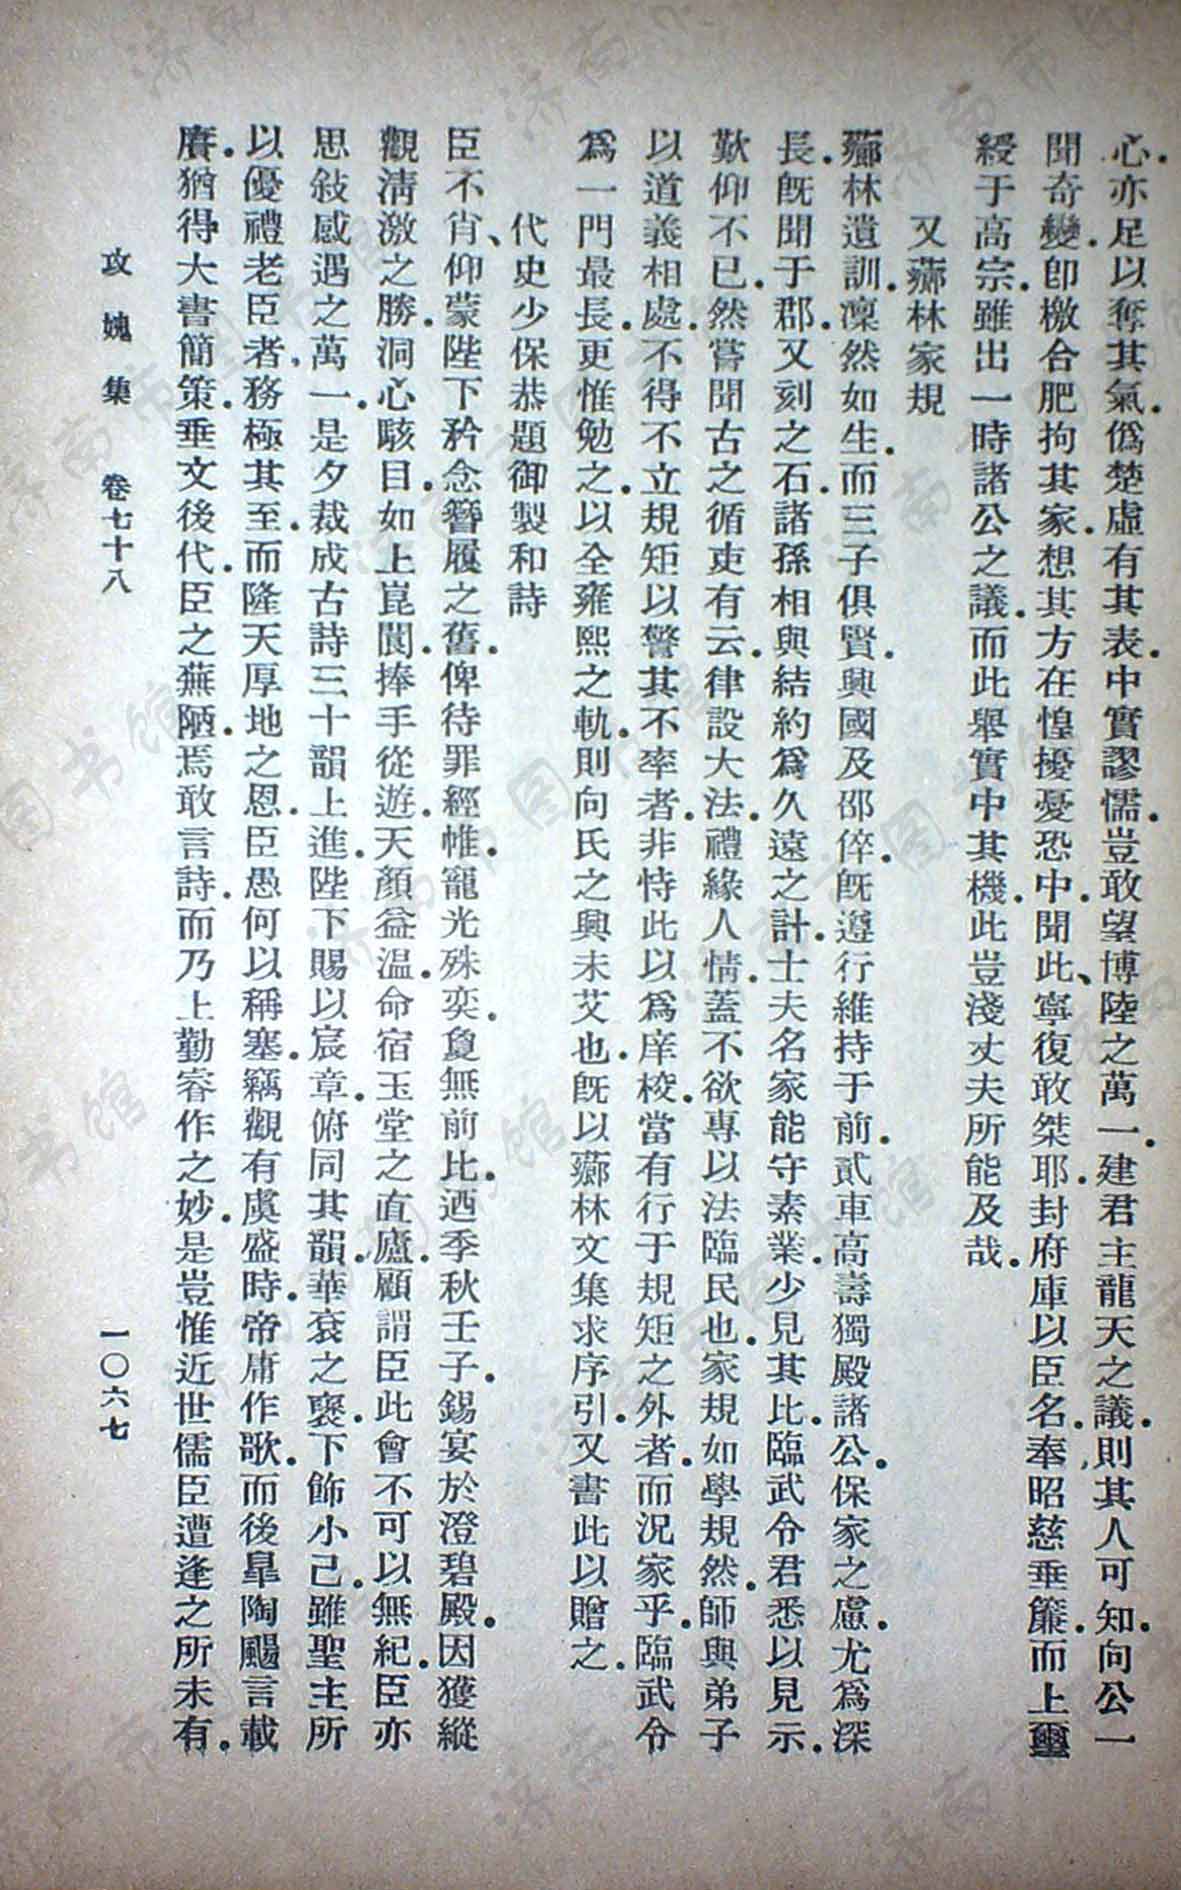 心.亦足以奪其氣.僞楚虛有其表.中實謬懦.豈敢望博陸之萬一.建君主龍天之議.則其人可知.向公一
聞奇變.卽檄合肥拘其家.想其方在惶擾憂恐中.聞此、寧復敢桀耶.封府庫以臣名.奉昭慈垂簾.而上璽
綬于高宗.雖出一時諸公之議.而此舉實中其機.此豈淺丈夫所能及哉.
又薌林家規
薌林遺訓.凜然如生.而三子俱賢.興國及邵倅.旣遵行維持于前.貳車高壽獨殿諸公.保家之慮.尤爲深
長.旣聞于郡.又刻之石.諸孫相與結約爲久遠之計.士夫名家能守素業.少見其比.臨武令君悉以見示.
歎仰不已.然嘗聞古之循吏有云.律設大法.禮緣人情.蓋不欲專以法臨民也.家規如學規然.師與弟子
以道義相處.不得不立規矩以警其不率者.非恃此以爲庠校.當有行于規矩之外者.而況家乎.臨武令
爲一門最長.更惟勉之.以全雍熙之軌.則向氏之興未艾也.旣以薌林文集求序引.又書此以贈之.
代史少保恭題御製和詩
臣不肖、仰蒙陛下矜念簪履之舊.俾待罪經帷.寵光殊奕.敻無前比.迺季秋壬子.錫宴於澄碧殿.因獲縱
觀淸激之勝.洞心駭目.如上崑閬.捧手從遊.天顏益溫.命宿玉堂之直廬.顧謂臣此會不可以無紀.臣亦
思敍感遇之萬一.是夕裁成古詩三十韻上進.陛下賜以宸章.俯同其韻.華袞之褒.下飾小己.雖聖主所
以優禮老臣者.務極其至.而隆天厚地之恩.臣愚何以稱塞.竊觀有虞盛時.帝庸作歌.而後皋陶颺言載
賡.猶得大書簡策.垂文後代.臣之蕪陋.焉敢言詩.而乃上勤睿作之妙.是豈惟近世儒臣遭逢之所未有.
攻媿集 卷七十八 一〇六七